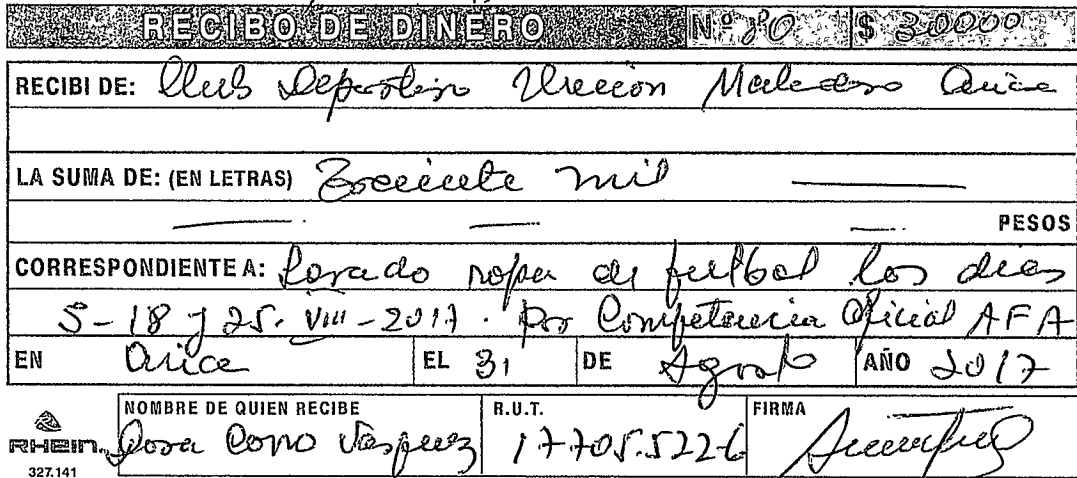 RECIBO DE DINERO Nº 80 $ 30000
RECIBI DE: Club Deportivo Unión Matadero Arica
LA SUMA DE: (EN LETRAS) Treinta mil
PESOS
CORRESPONDIENTE A: Lavado ropa de futbol los dias
5-18 y 25. VIII-2017. Por Competencia Oficial AFA
EN Arica EL 31 DE Agosto AÑO 2017
NOMBRE DE QUIEN RECIBE R.U.T. FIRMA
RHEIN Rosa Vasquez 17705.522-6
327.141